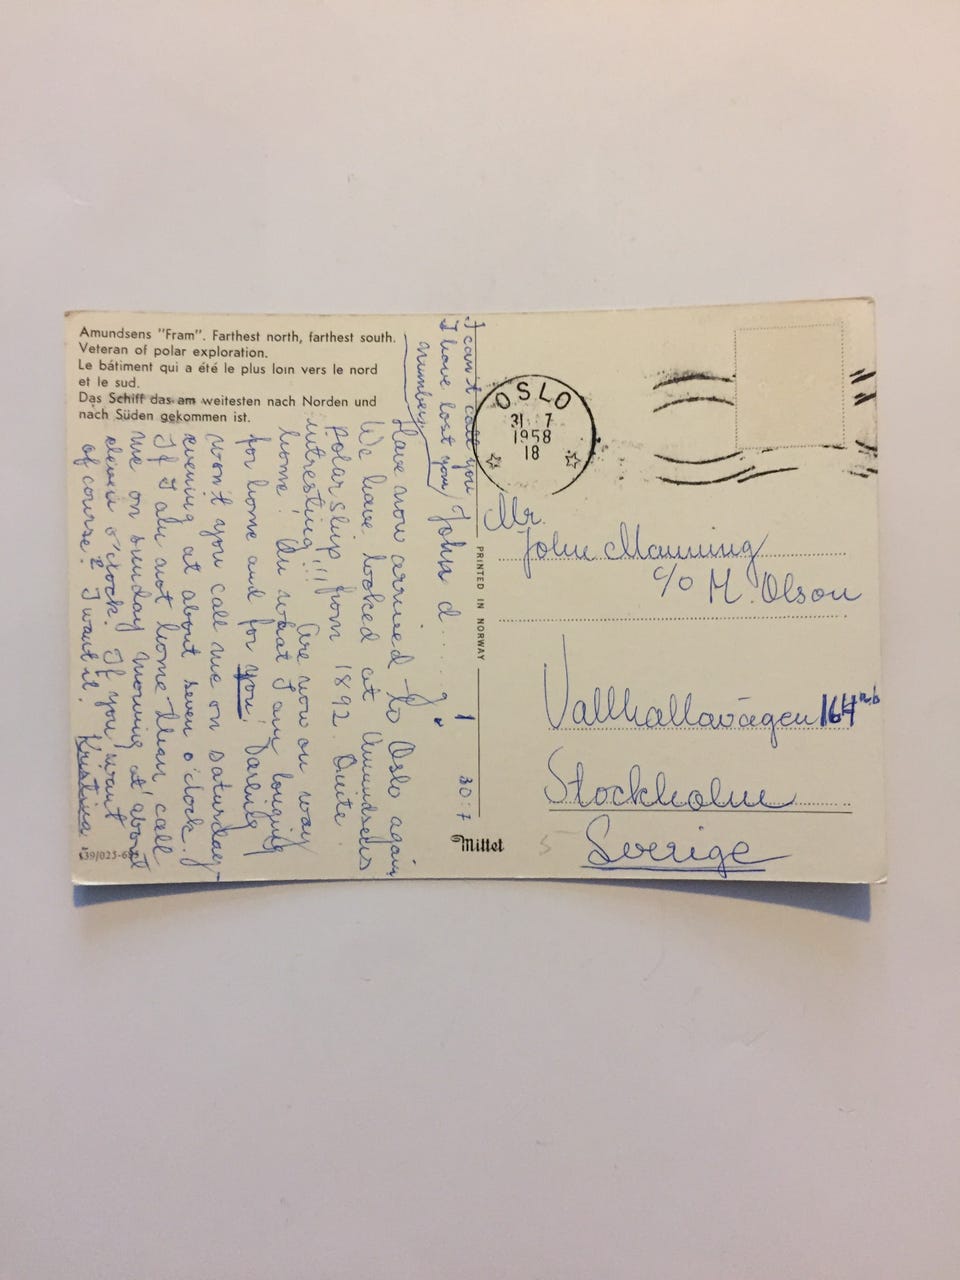 Amundsens "Fram". Farthest north, farthest south.
Veteran of polar exploration.
Le bâtiment qui a été le plus loin vers le nord
et le sud.
Das Schiff das am weitesten nach Norden und
nach Süden gekommen ist.
I can't call you
I have lost your
number.
30:7
John d.....g
Have now arrived to Oslo again
We have looked at Amundsens
polarship from 1892. Quite
intresting!!! Are now on way
home! Au what I am longing
for home and for you! Darling
won't you call me on saturday-
evening at about seven o'clock.
If I am not home then call
me on sunday morning at about
eleven o'clock. If you want
of course! I want it. Kristina
OSLO
31 7
1958
18
Mr.
John Manning
c/o M. Olson
Vallhallavägen 164
Stockholm
Sverige
PRINTED IN NORWAY
Mittet